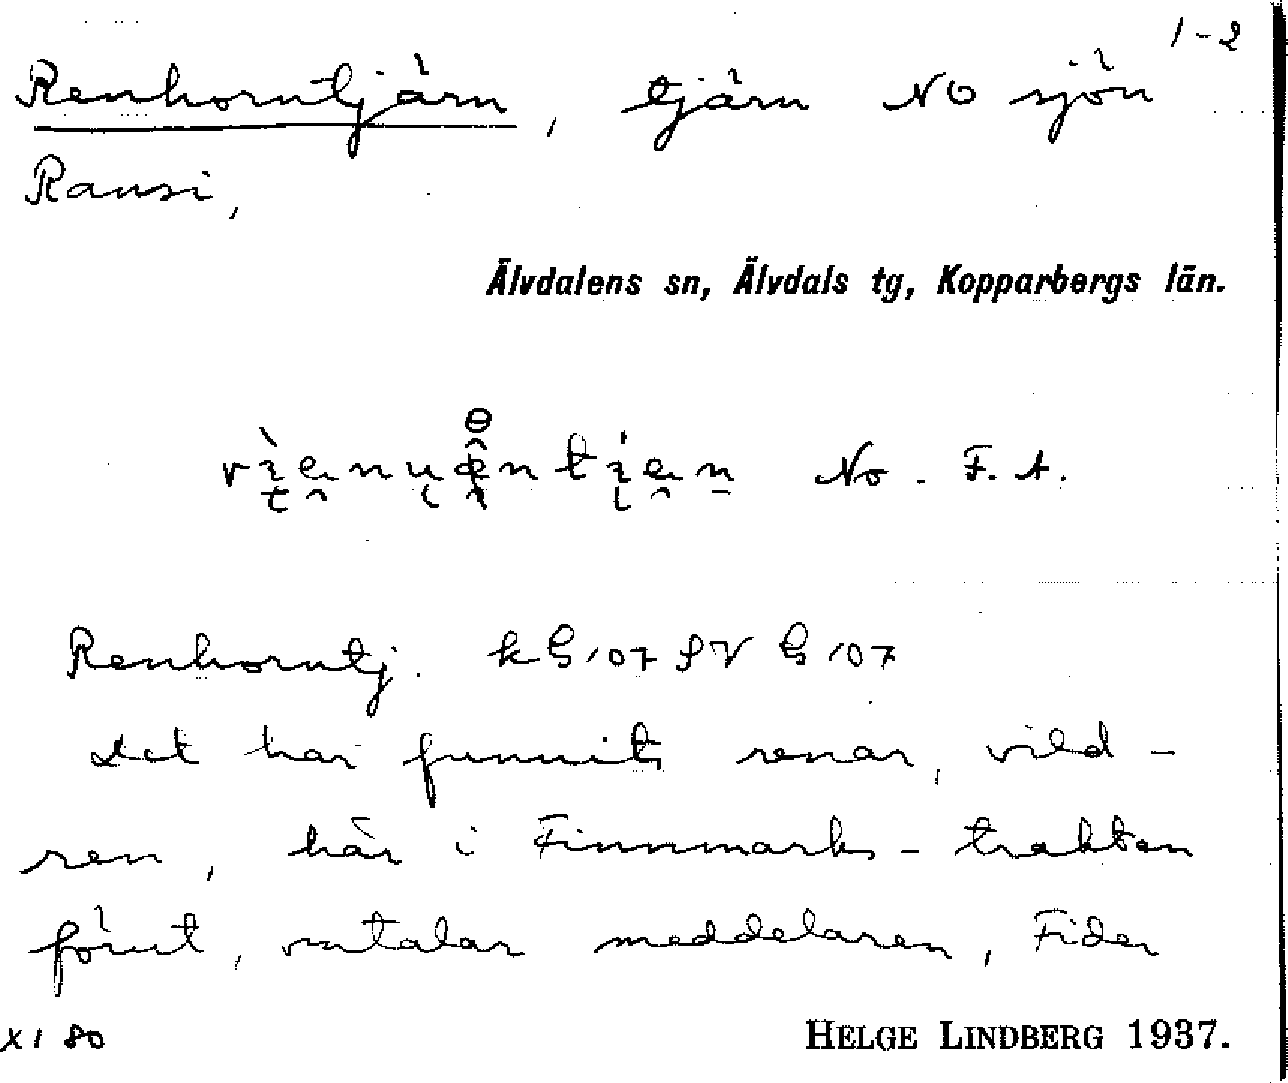 1-2
Renhorntjärn, tjärn NO sjön
Ransi,
Älvdalens sn, Älvdals tg, Kopparbergs län.
No. F. A.
Renhorntj. kG 107 SV G 107
Det har funnits renar, vild-
ren, här i Finnmarks-trakten
förut, omtalar meddelaren, Fider
XI 80
HELGE LINDBERG 1937.